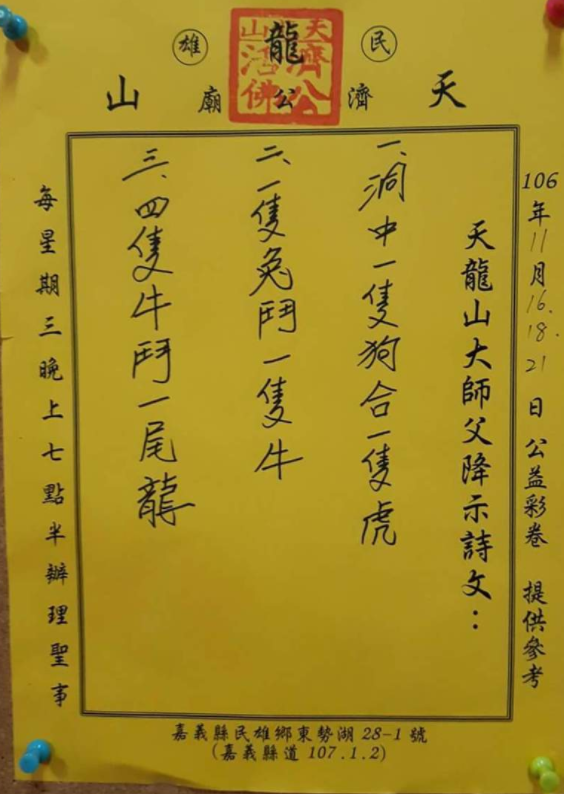 民雄
天龍山濟公廟
天濟公
山活佛
106年11月16.18.21日公益彩卷 提供參考
天龍山大師父降示詩文：
一、洞中一隻狗合一隻虎
二、一隻兔鬥一隻牛
三、四隻牛鬥一尾龍
每星期三晚上七點半辦理聖事
嘉義縣民雄鄉東勢湖28-1號
(嘉義縣道107.1.2)